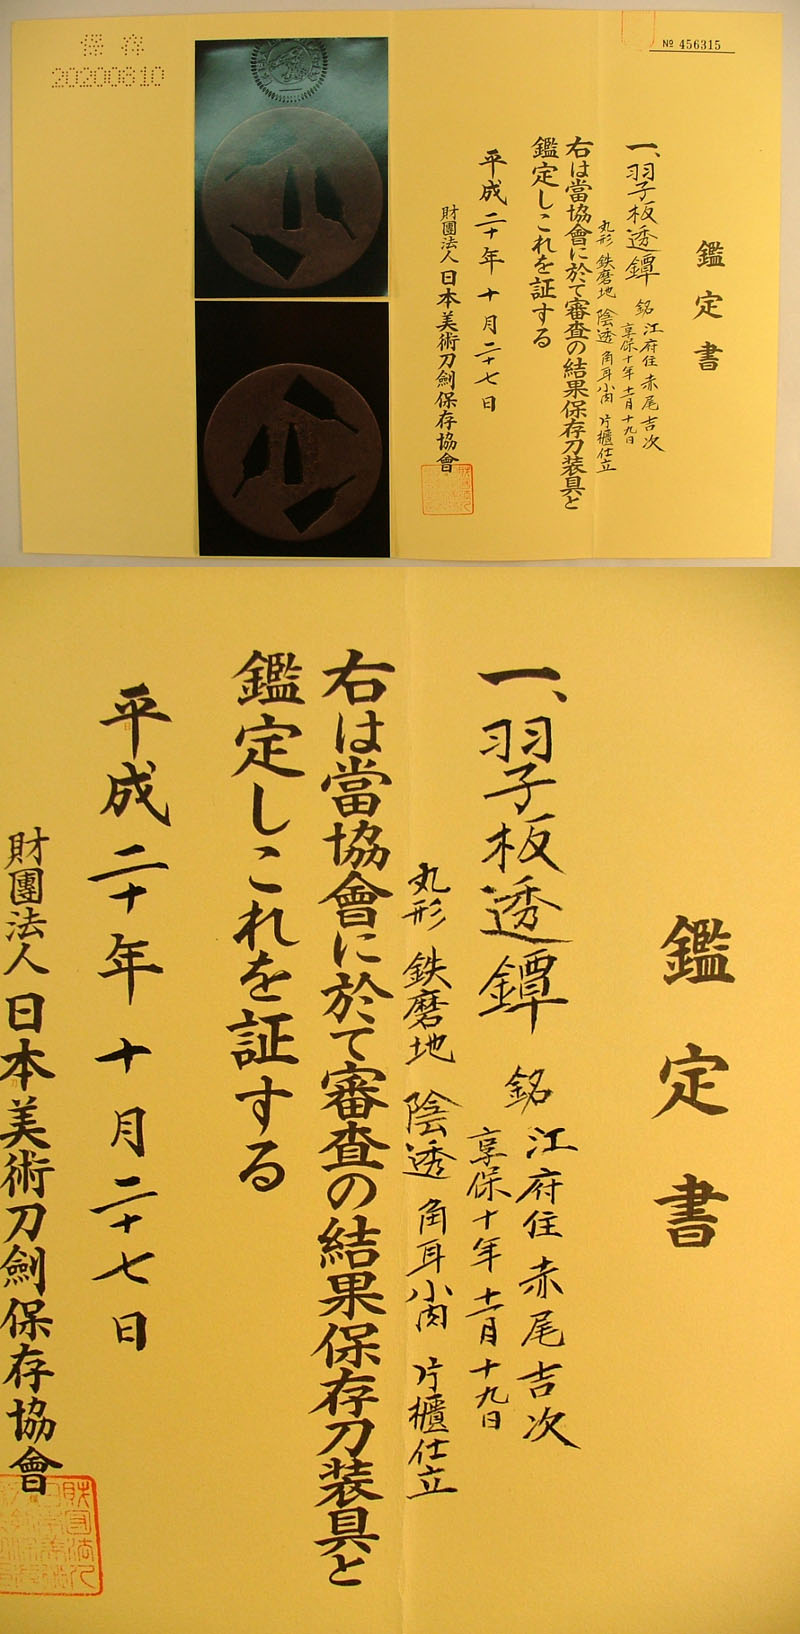 保存
20200810
№ 456315
鑑定書
一、羽子板透鐔 銘 江府住 赤尾吉次
享保十年十一月十九日
丸形 鉄磨地 陰透 角耳小肉 片櫃仕立
右は當協會に於て審査の結果保存刀装具と
鑑定しこれを証する
平成二十年十月二十七日
財團法人 日本美術刀劍保存協會
鑑定書
一、羽子板透鐔 銘 江府住 赤尾吉次
享保十年十一月十九日
丸形 鉄磨地 陰透 角耳小肉 片櫃仕立
右は當協會に於て審査の結果保存刀装具と
鑑定しこれを証する
平成二十年十月二十七日
財團法人 日本美術刀劍保存協會